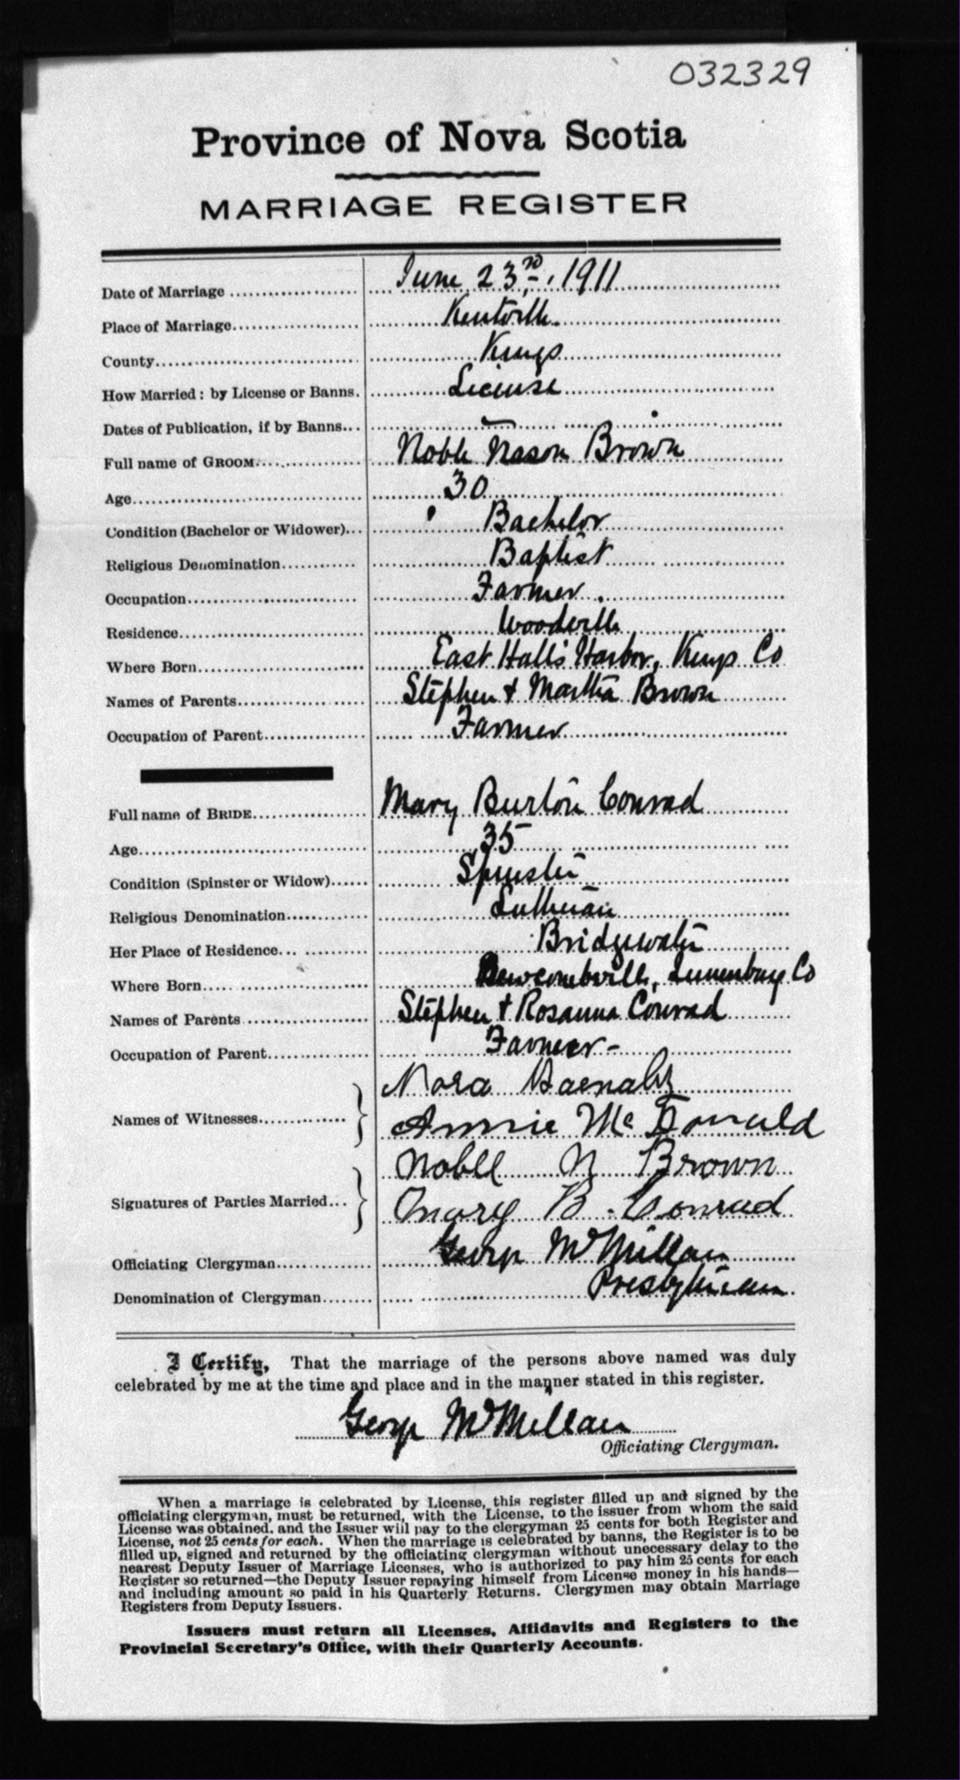 032329
Province of Nova Scotia
MARRIAGE REGISTER
Date of Marriage June 23rd, 1911
Place of Marriage Kentville.
County Kings
How Married: by License or Banns. License
Dates of Publication, if by Banns
Full name of GROOM Noble Nason Brown
Age 30
Condition (Bachelor or Widower) Bachelor
Religious Denomination Baptist
Occupation Farmer.
Residence Woodville
Where Born East Hall's Harbor, Kings Co
Names of Parents Stephen & Martha Brown
Occupation of Parent Farmer
Full name of BRIDE Mary Burton Conrad
Age 35
Condition (Spinster or Widow) Spinster
Religious Denomination Lutheran
Her Place of Residence Bridgewater
Where Born Newcombville, Lunenburg Co
Names of Parents Stephen & Rosanna Conrad
Occupation of Parent Farmer -
Nora
Names of Witnesses
Annie McDonald
Noble N Brown
Signatures of Parties Married
Mary B. Conrad
Officiating Clergyman George McMillan
Denomination of Clergyman Presbyterian.
I Certify, That the marriage of the persons above named was duly
celebrated by me at the time and place and in the manner stated in this register.
George McMillan
Officiating Clergyman.
When a marriage is celebrated by License, this register filled up and signed by the
officiating clergyman, must be returned, with the License, to the issuer from whom the said
License was obtained. and the Issuer will pay to the clergyman 25 cents for both Register and
License, not 25 cents for each. When the marriage is celebrated by banns, the Register is to be
filled up, signed and returned by the officiating clergyman without unecessary delay to the
nearest Deputy Issuer of Marriage Licenses, who is authorized to pay him 25 cents for each
Register so returned—the Deputy Issuer repaying himself from License money in his hands—
and including amount so paid in his Quarterly Returns. Clergymen may obtain Marriage
Registers from Deputy Issuers.
Issuers must return all Licenses, Affidavits and Registers to the
Provincial Secretary's Office, with their Quarterly Accounts.